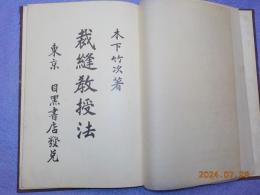 木下竹次著
裁縫教授法
東京 目黒書店發兌
2024.07.28